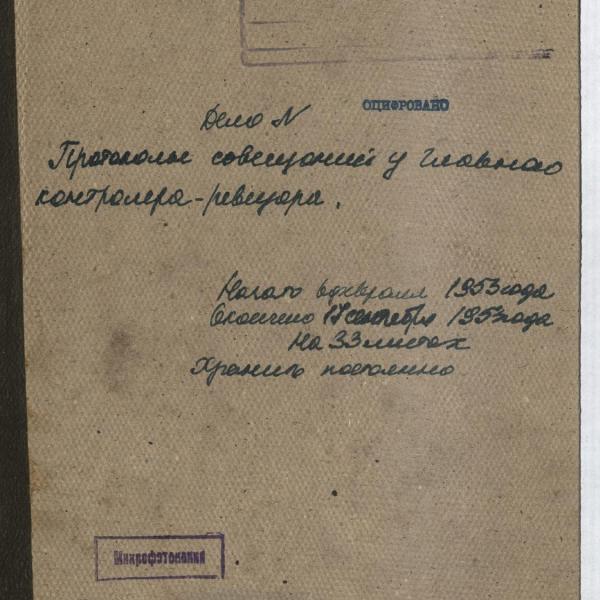 ОЦИФРОВАНО
Дело N
Протоколы совещаний у Главного
контролера-ревизора.
Начато 6 февраля 1953 года
Окончено 17 сентября 1953 года
На 33 листах
Хранить постоянно